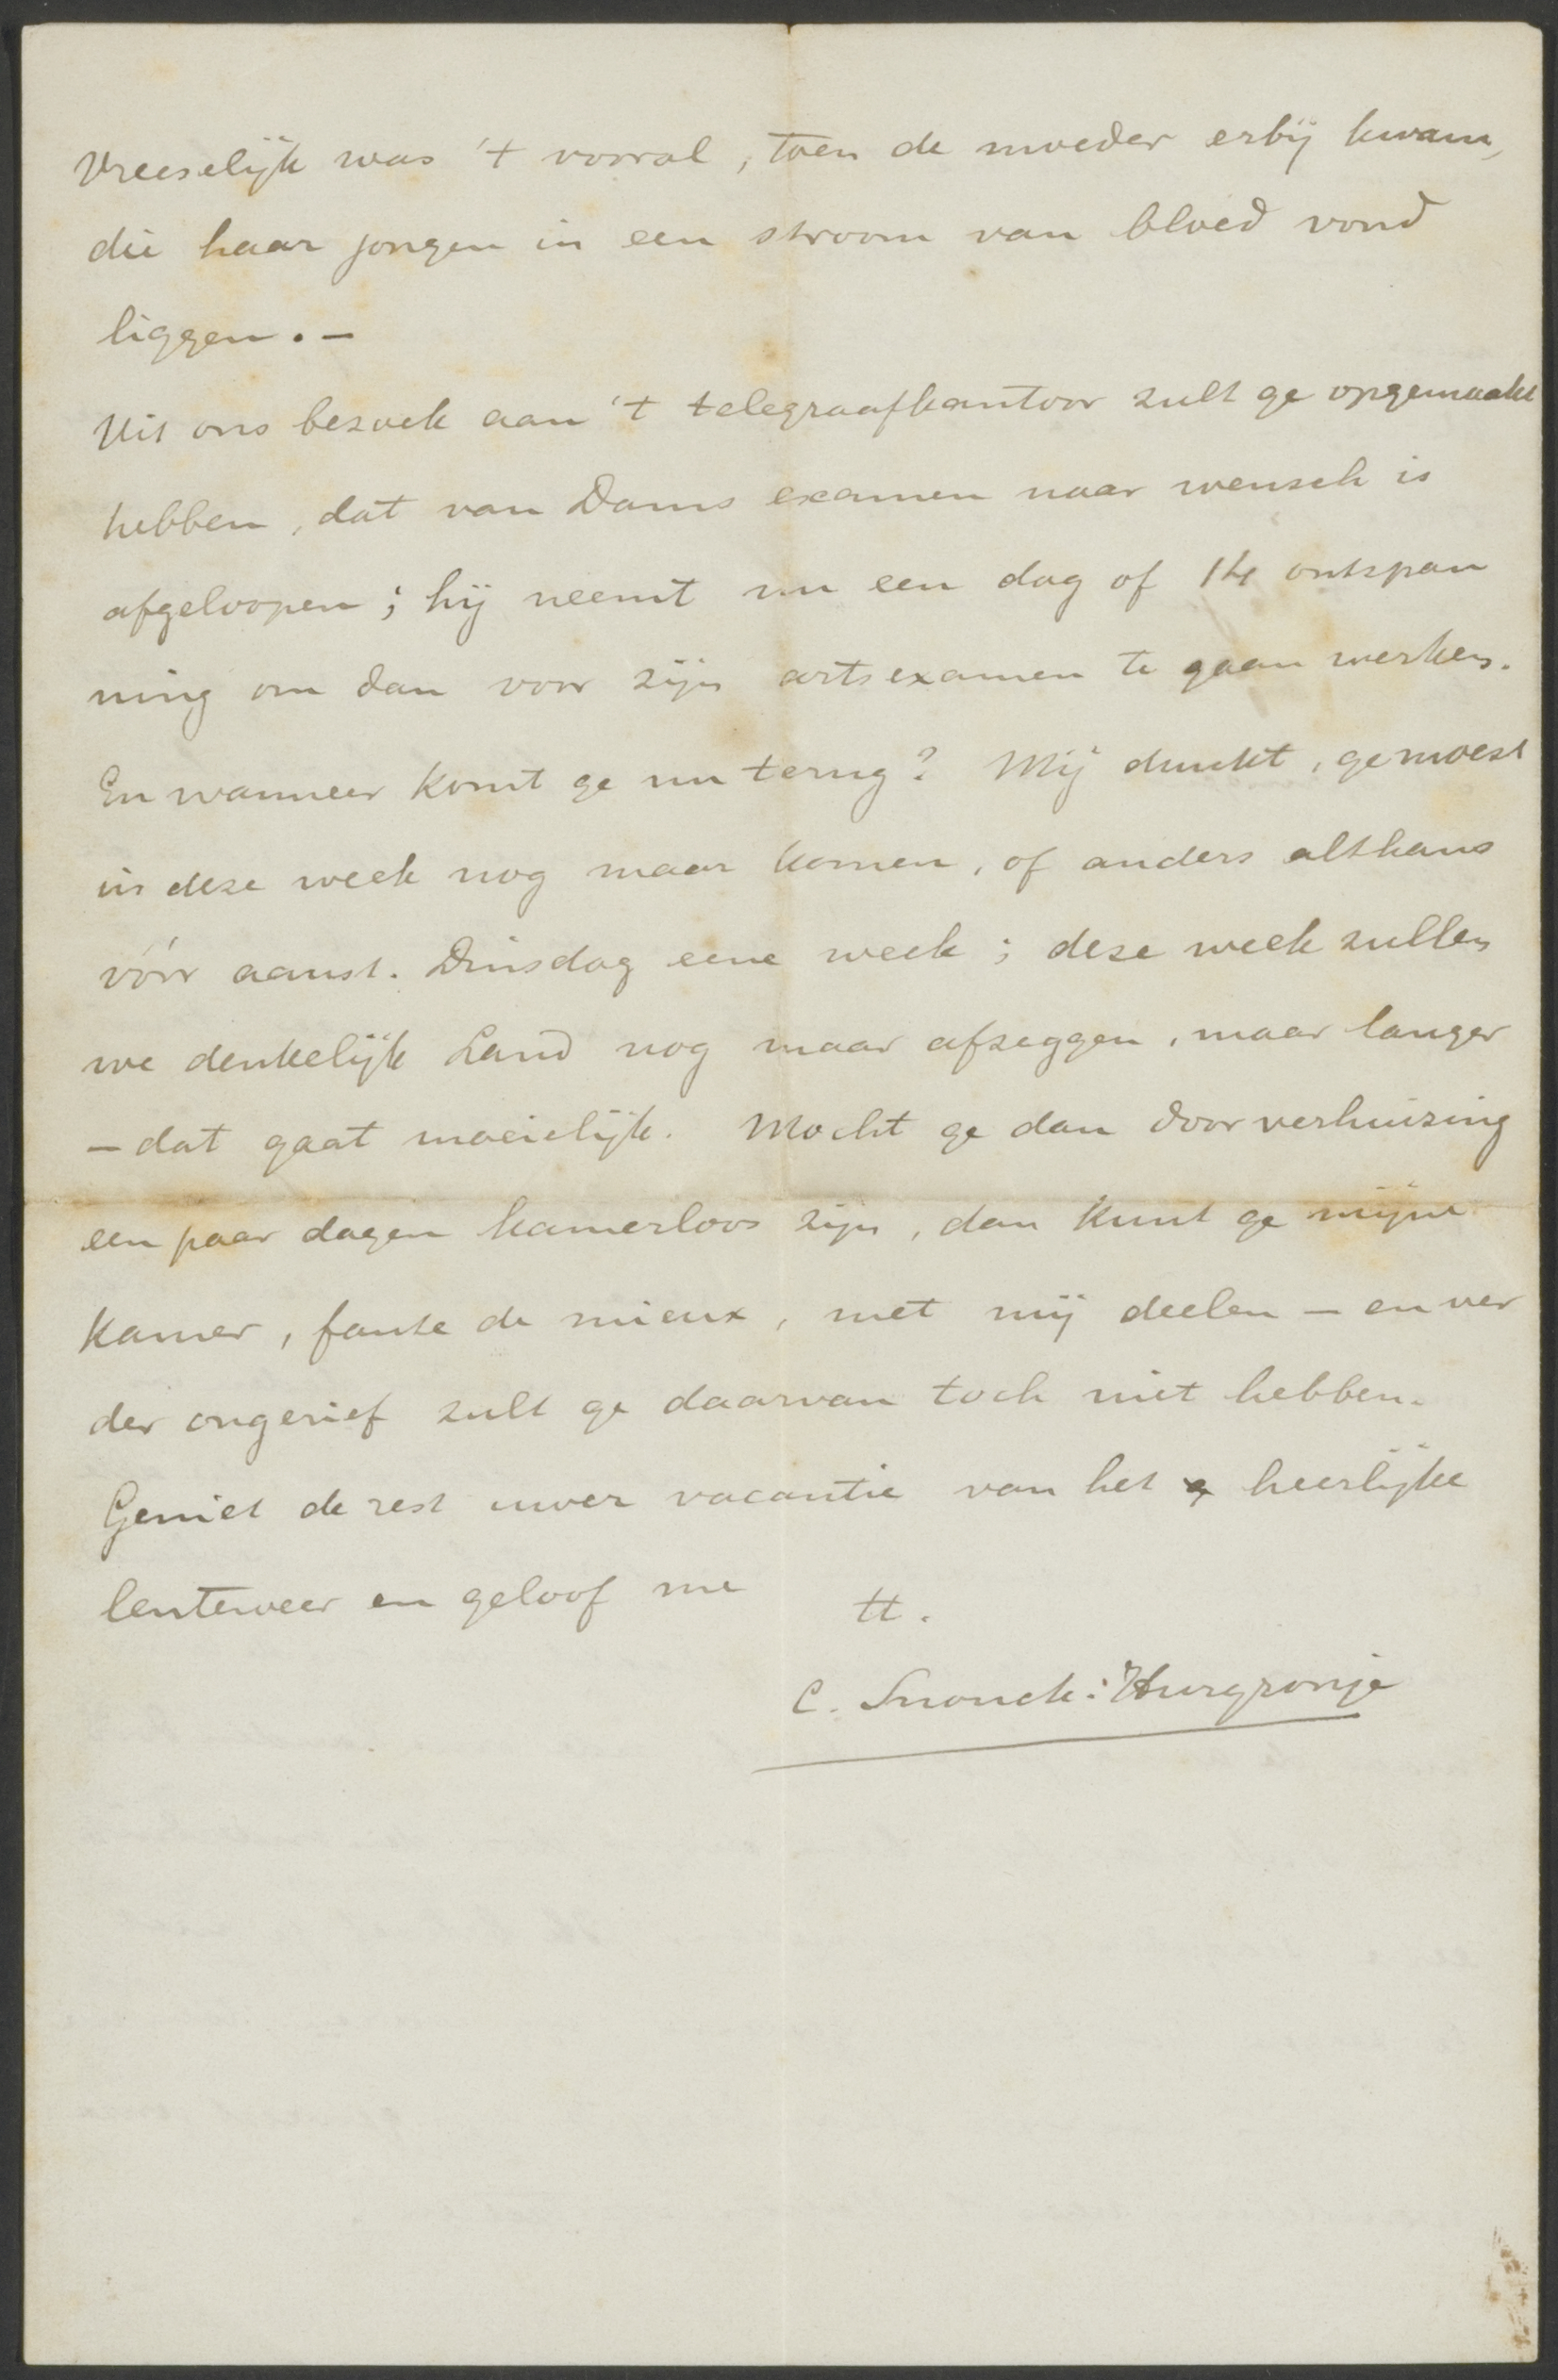 Vreeselijk was 't vooral, toen de moeder erbij kwam,
die haar jongen in een stroom van bloed vond
liggen. –
Uit ons bezoek aan 't telegraafkantoor zult ge opgemaakt
hebben, dat van Dams examen naar wensch is
afgeloopen; hij neemt nu een dag of 14 ontspan
ning om dan voor zijn artsexamen te gaan werken.
En wanneer komt ge nu terug? Mij dunkt, ge moest
in deze week nog maar komen, of anders althans
vóór aanst. Dinsdag eene week; deze week zullen
we denkelijk Land nog maar afzeggen, maar langer
– dat gaat moeielijk. Mocht ge dan door verhuizing
een paar dagen kamerloos zijn, dan kunt ge mijne
kamer, faute de mieux, met mij deelen – en ver
der ongerief zult ge daarvan toch niet hebben.
Geniet de rest uwer vacantie van het heerlijke
lenteweer en geloof me
tt.
C. Snouck Hurgronje